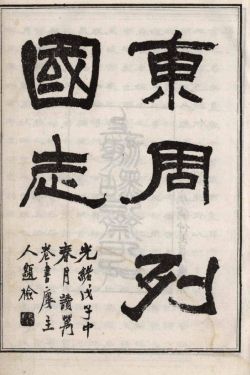 東周列
國志
光緒戊子中
春月讀萬
卷書廔主
人題檢